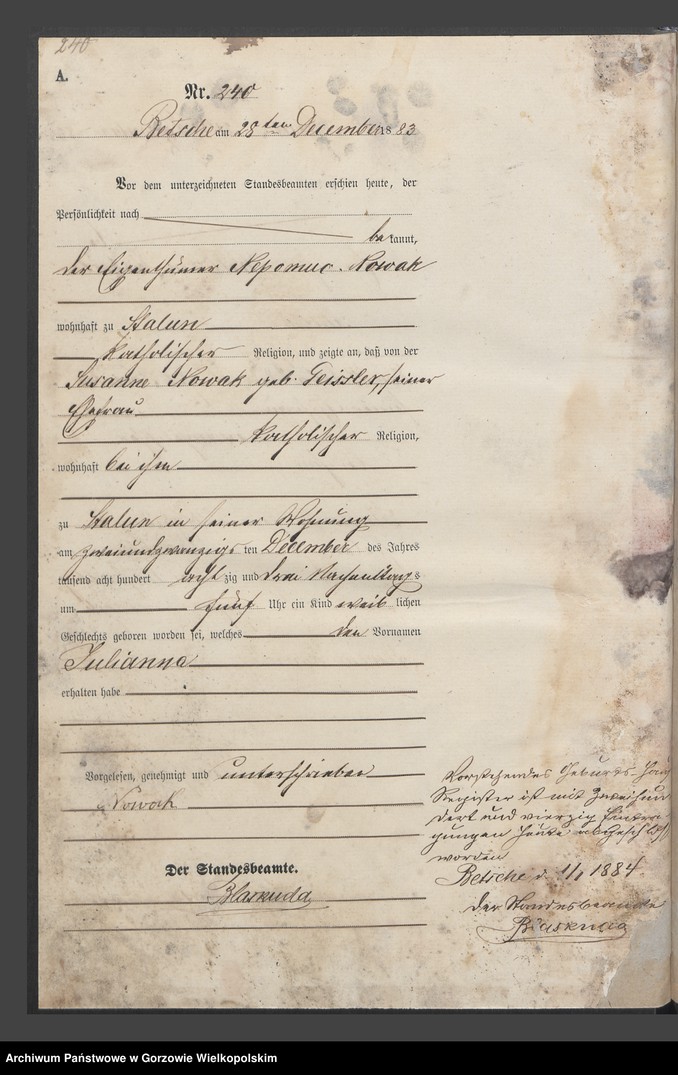 240
A.
Nr. 240
Betsche am 28ten December 1883
Vor dem unterzeichneten Standesbeamten erschien heute, der
Persönlichkeit nach
bekannt,
der Eigenthümer Nepomuc Nowak
wohnhaft zu Stalun
katholischer Religion, und zeigte an, daß von der
Susanne Nowak geb. Geissler, seiner
Ehefrau
katholischer Religion,
wohnhaft bei ihm
zu Stalun in seiner Wohnung
am zweiundzwanzigsten December des Jahres
tausend acht hundert achtzig und drei Nachmittags
um fünf Uhr ein Kind weiblichen
Geschlechts geboren worden sei, welches den Vornamen
Julianna
erhalten habe
Vorgelesen, genehmigt und unterschrieben
Nowak
Der Standesbeamte.
Blaskuda
Vorstehendes Geburts-Haupt
Register ist mit Zweihun
dert und vierzig Eintra
gungen heute abgeschloss
worden
Betsche d. 1/1 1884
Der Standesbeamte
Blaskuda
Archiwum Państwowe w Gorzowie Wielkopolskim